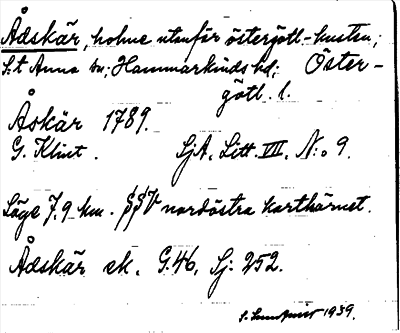 Ådskär, holme utanför östergötl-kusten;
S:t Anna sn; Hammarkinds hd; Öster-
götl. l.
Åskär 1789.
G. Klint. SjA. Litt. VII. N:o 9.
Läge 7.9 km. SSV nordöstra karthörnet.
Ådskär ek. G.46, Sj. 252.
S. Lundqvist 1939.